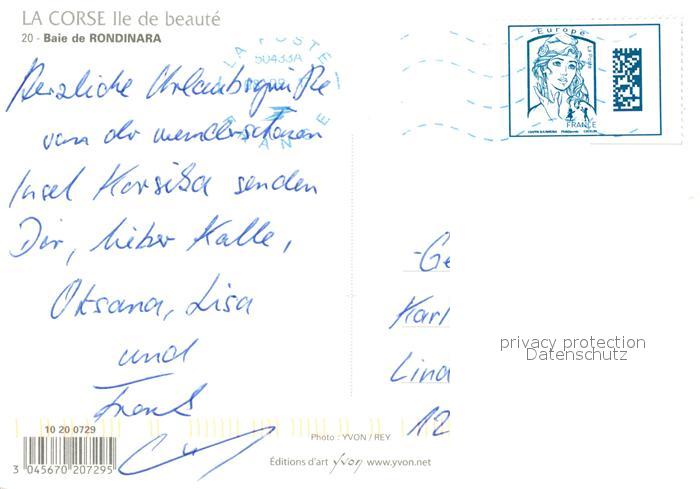 LA CORSE Ile de beauté
20 - Baie de RONDINARA
LA POSTE
50433A
Europe
La Poste
FRANCE
Herzliche Urlaubsgrüße
von der wunderschönen
Insel Korsika senden
Dir, lieber Kalle,
Oksana, Lisa
und
Frank
Karl
Lind
12
privacy protection
Datenschutz
10 20 0729
3 045670 207295
Photo : YVON / REY
Éditions d'art yvon www.yvon.net